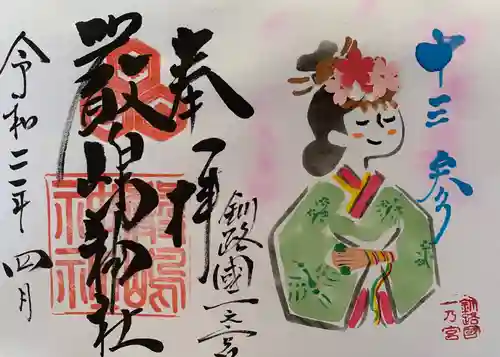 十三参り
奉拝
釧路國一之宮
嚴嶋神社
令和三年
四月
嚴嶋
神社
釧路國
一乃宮